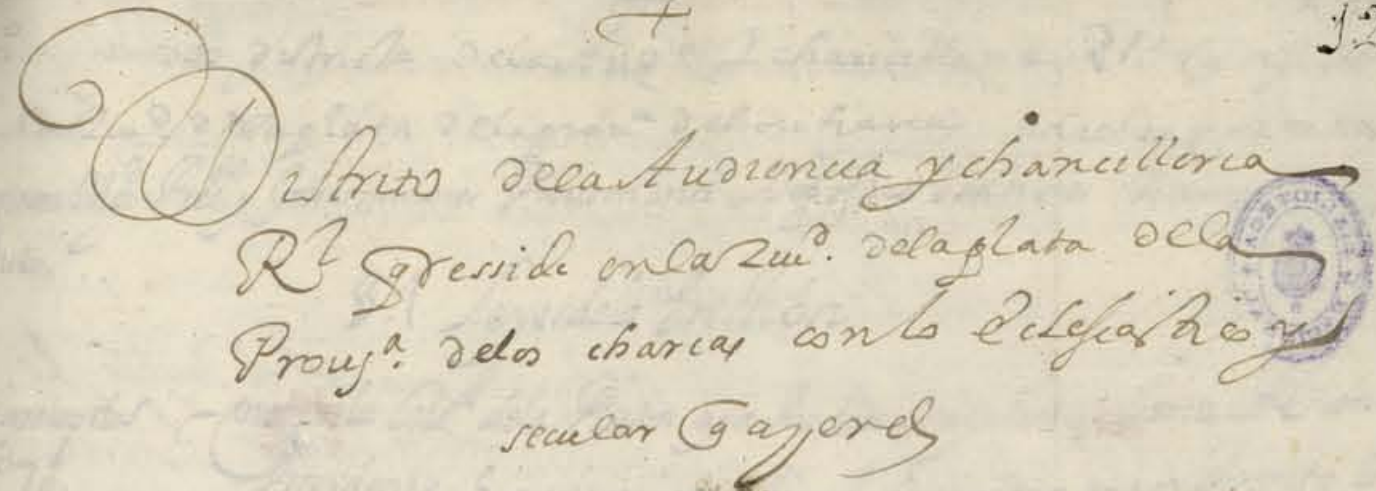 12
Distrito dela Audiencia y chancilleria
Rl qResside en la Ziud. de la plata de la
Prouja. delos charcas con lo Eclesiastico y
secular q ay en el